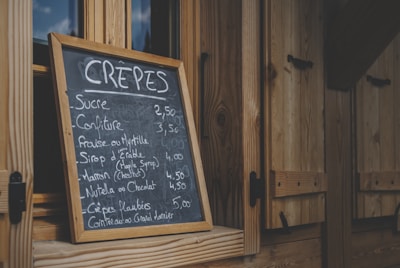 CRÊPES
- Sucre 2,50
- Confiture 3,50
Fraise ou Myrtille
- Sirop d'Erable 4.00
(Maple Syrop)
- Marron 4.50
(Chestnut)
- Nutella ou Chocolat 4.50
- Crêpes flambées 5,00
Cointreau ou Grand Marnier